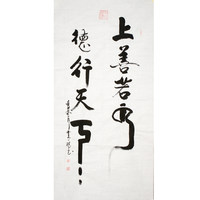 上善若水
德行天下